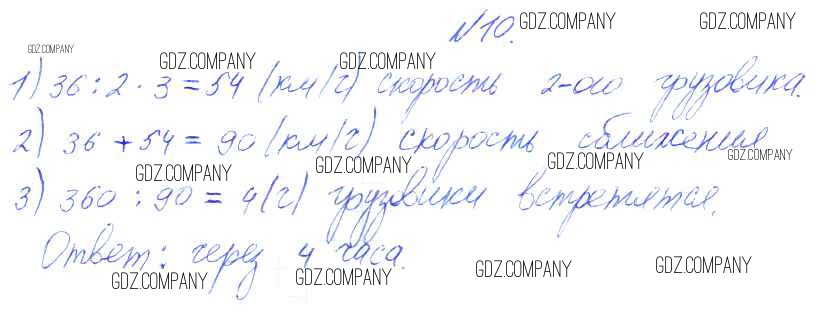 №10.
GDZ.COMPANY GDZ.COMPANY
GDZ.COMPANY GDZ.COMPANY GDZ.COMPANY
1) 36 : 2 · 3 = 54 (км/г) скорость 2-ого грузовика.
2) 36 + 54 = 90 (км/г) скорость сближения
GDZ.COMPANY GDZ.COMPANY GDZ.COMPANY GDZ.COMPANY
3) 360 : 90 = 4 (г) грузовики встретятся.
Ответ: через 4 часа.
GDZ.COMPANY GDZ.COMPANY GDZ.COMPANY GDZ.COMPANY